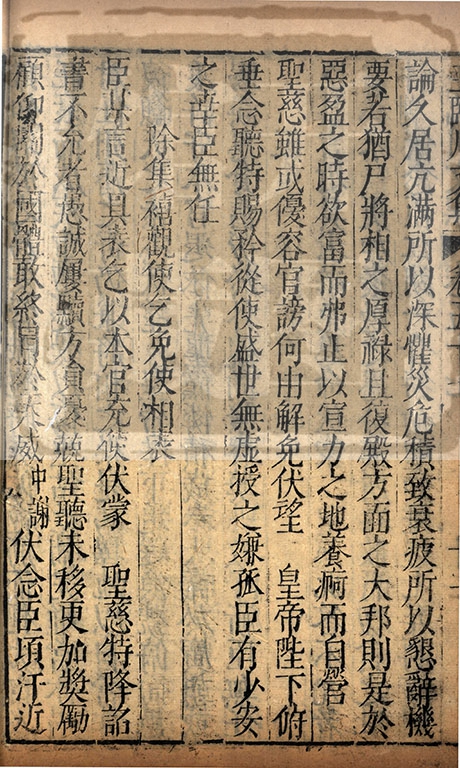 臨川文集 卷五十
論久居亢滿所以深懼災危積致衰疲所以懇辭機
要若猶尸將相之厚祿且復殿方面之大邦則是於
惡盈之時欲富而弗止以宣力之地養痾而自營
聖慈雖或優容官謗何由解免伏望 皇帝陛下俯
垂念聽特賜矜從使盛世無虛授之嫌孤臣有少安
之幸臣無任
除集禧觀使乞免使相表
臣某言近具表乞以本官充候伏蒙 聖慈特降詔
書不允者愚誠屢瀆方負憂兢聖聽未移更加獎勵
顧仰關於國體敢終冒於天威中謝伏念臣頃汙近